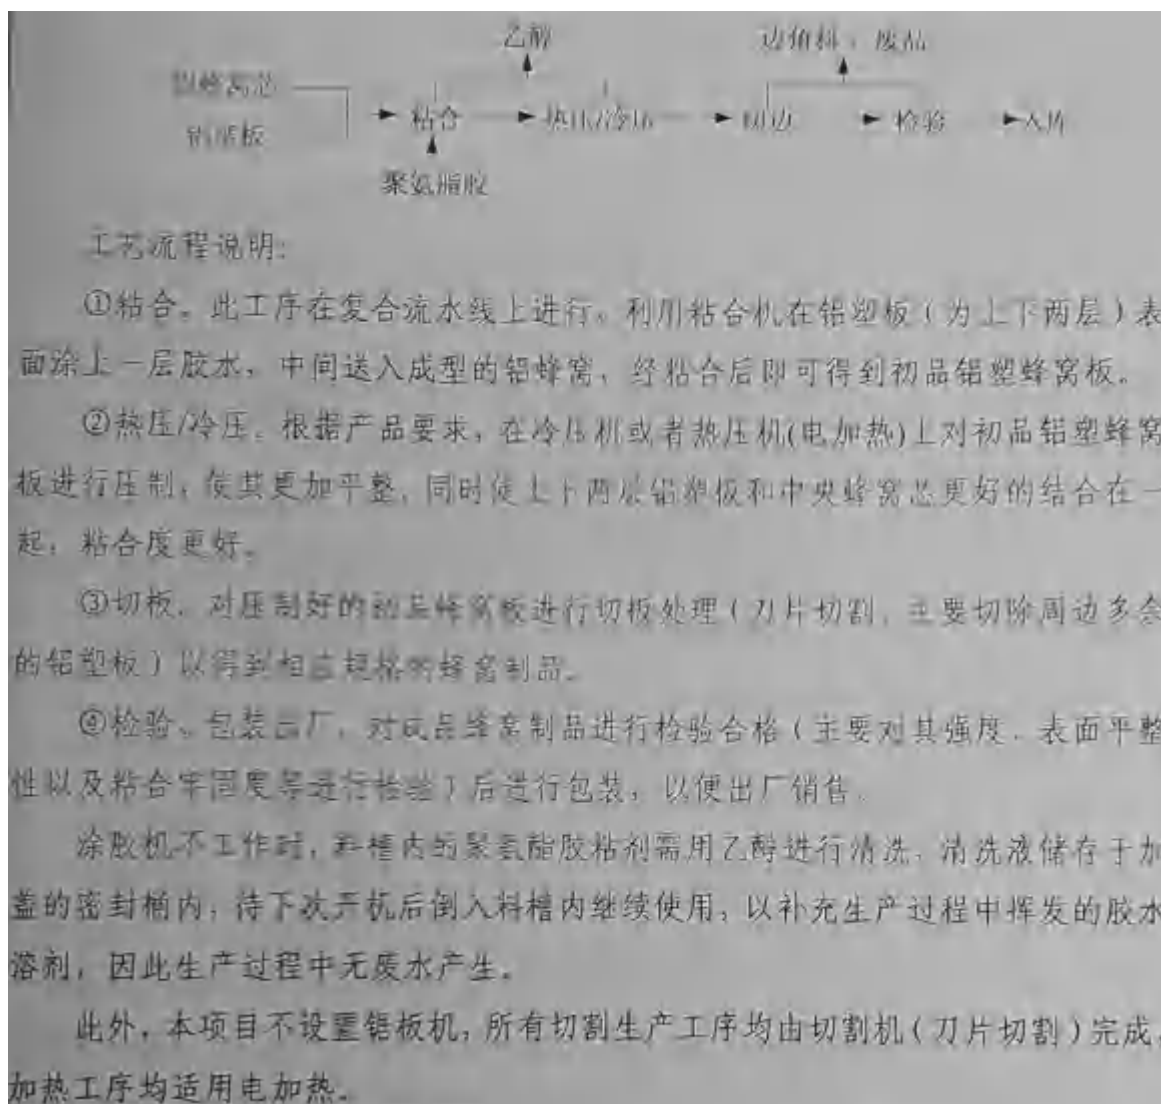 乙醇 边角料、废品
铝蜂窝芯
铝塑板
粘合 热压/冷压 切边 检验 入库
聚氨脂胶
工艺流程说明:
①粘合。此工序在复合流水线上进行。利用粘合机在铝塑板(为上下两层)表
面涂上一层胶水,中间送入成型的铝蜂窝,经粘合后即可得到初品铝塑蜂窝板。
②热压/冷压。根据产品要求,在冷压机或者热压机(电加热)上对初品铝塑蜂窝
板进行压制,使其更加平整,同时使上下两层铝塑板和中央蜂窝芯更好的结合在一
起,粘合度更好。
③切板。对压制好的初品蜂窝板进行切板处理(刀片切割,主要切除周边多余
的铝塑板)以得到相应规格的蜂窝制品。
④检验、包装出厂。对成品蜂窝制品进行检验合格(主要对其强度、表面平整
性以及粘合牢固度等进行检验)后进行包装,以便出厂销售。
涂胶机不工作时,料槽内的聚氨酯胶粘剂需用乙醇进行清洗,清洗液储存于加
盖的密封桶内,待下次开机后倒入料槽内继续使用,以补充生产过程中挥发的胶水
溶剂,因此生产过程中无废水产生。
此外,本项目不设置锯板机,所有切割生产工序均由切割机(刀片切割)完成,
加热工序均适用电加热。